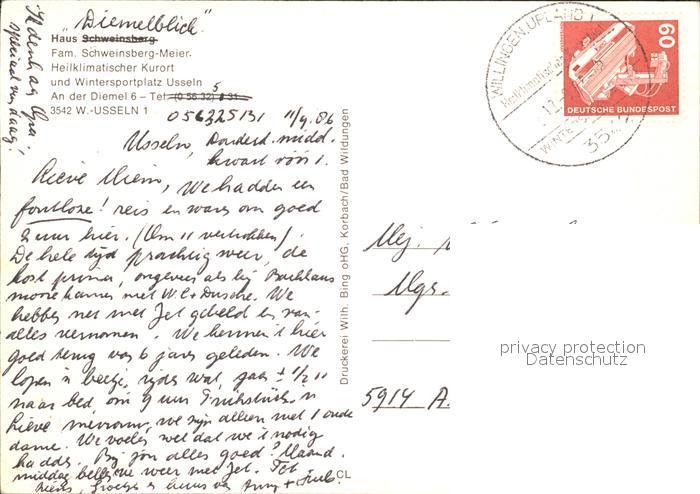 "Diemelblick"
Haus Schweinsberg
Fam. Schweinsberg-Meier
Heilklimatischer Kurort
und Wintersportplatz Usseln
An der Diemel 6 – Tel. (0 56 32) 8 31
5
3542 W.-USSELN 1
056325131 11/9. 86
Ik denk aan
vandaag!
Usseln, Donderd. midd.
kwart vóór 1.
Lieve Miem, We hadden een
foutloze! reis en waren om goed
2 uur hier. (Om 11 vertrokken).
De hele tijd prachtig weer, de
kost prima, ongeveer als bij Bachhaus
mooie kamer met W.C + Dusche. We
hebben net met Jet gebeld en van
alles vernomen. We kennen 't hier
goed terug van 6 jaar geleden. We
lopen 'n beetje, rijden wat, gaan ± 1/2 11
naar bed, om 9 uur Frühstück. 'n
lieve mevrouw, we zijn alleen met 1 oude
dame. We voelen wel dat we 't nodig
hadden. Bij jou alles goed? Maand.
middag bellen we weer met Jet. Tot
ziens, Groetjes en kus van +
Druckerei Wilh. Bing oHG, Korbach/Bad Wildungen
CL
WILLINGEN, UPLAND 1
Heilklimatischer
WINTE
35
60
DEUTSCHE BUNDESPOST
Mej.
Ugs.
5914 A.
privacy protection
Datenschutz